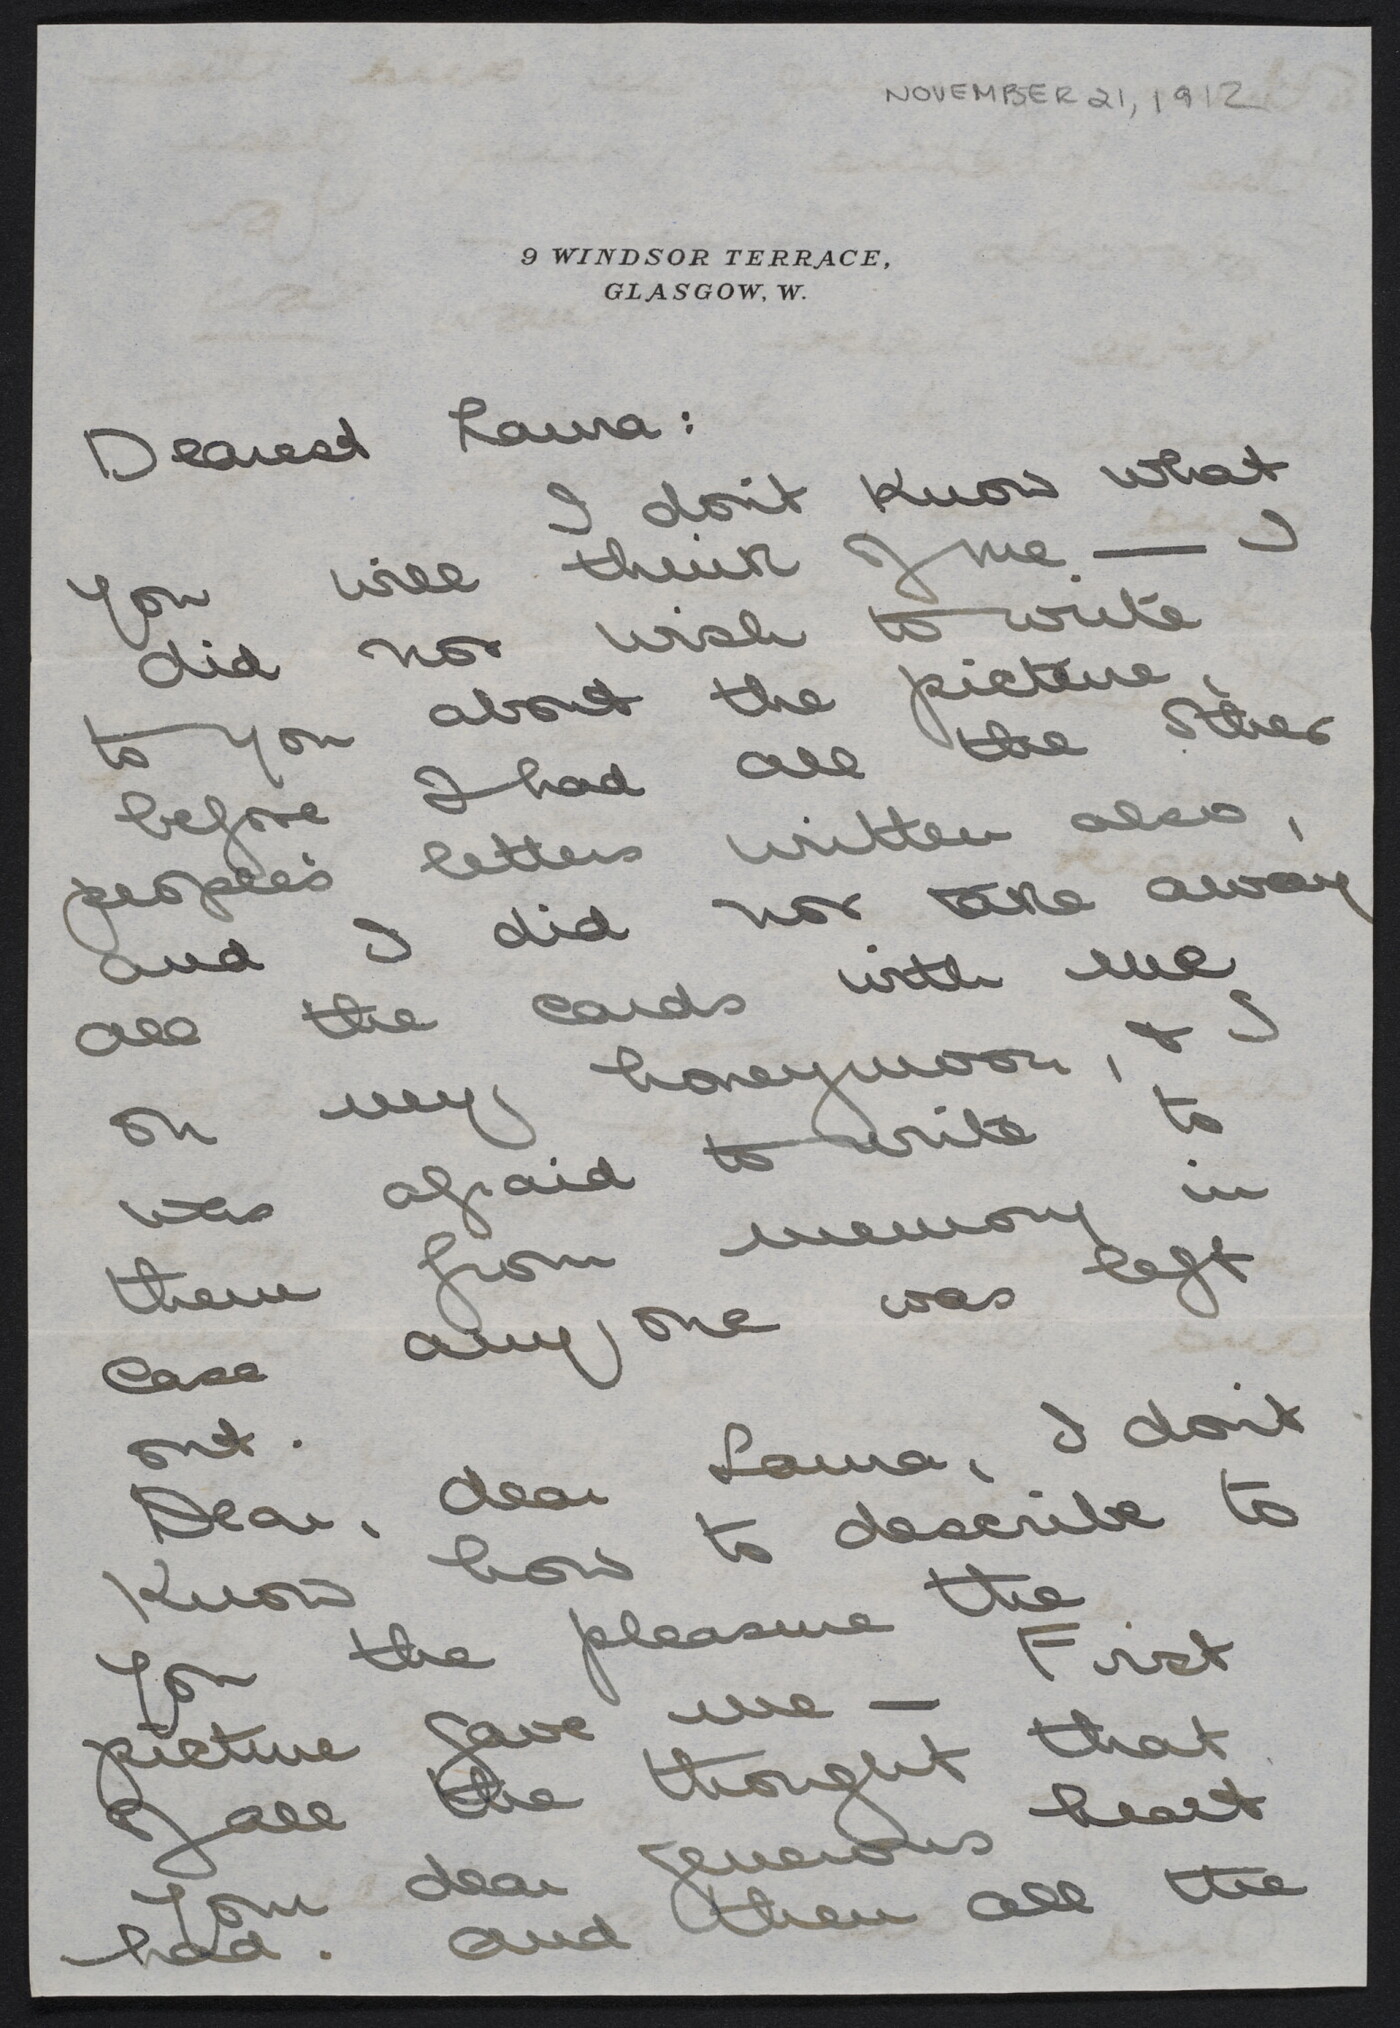 NOVEMBER 21, 1912
9 WINDSOR TERRACE,
GLASGOW, W.
Dearest Laura:
I don't know what
you will think of me — I
did not wish to write
to you about the picture,
before I had all the other
people's letters written also,
and I did not take away
all the cards with me
on my honeymoon, & I
was afraid to write to
them from memory in
case any one was left
out.
Dear, dear Laura, I don't
know how to describe to
you the pleasure the
picture gave me — First
of all the thought that
your dear generous heart
had. and then all the